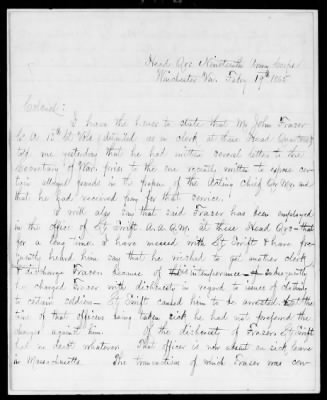 Head Qrs Nineteenth Army Corps
Winchester Va. Feby 19th 1865
Colonel:
I have the honor to state that Mr John Frazer
Co A 13th Ct Vols, detailed as a clerk at these Head Quarters
told me yesterday that he had written several letters to the
Secretary of War, prior to the one recently written to expose cer-
tain alleged frauds in the papers of the Acting Chief Qr Mr and
that he had received pay for that service.
I will also say that said Frazer has been employed
in the office of Lt Swift A.A.Q.M. at these Head Qrs
for a long time. I have messed with Lt Swift & have fre-
quently heard him say that he wished to get another clerk
& discharge Frazer because of intemperance & subsequently
he charged Frazer with dishonesty in regard to issue of clothing
to certain soldiers. Lt Swift caused him to be arrested but at the
time of that officers being taken sick he had not preferred the
charges against him. Of the dishonesty of Frazer Lt Swift
had no doubt whatever. That officer is now absent on sick leave
in Massachusetts. The transactions of which Frazer was con-